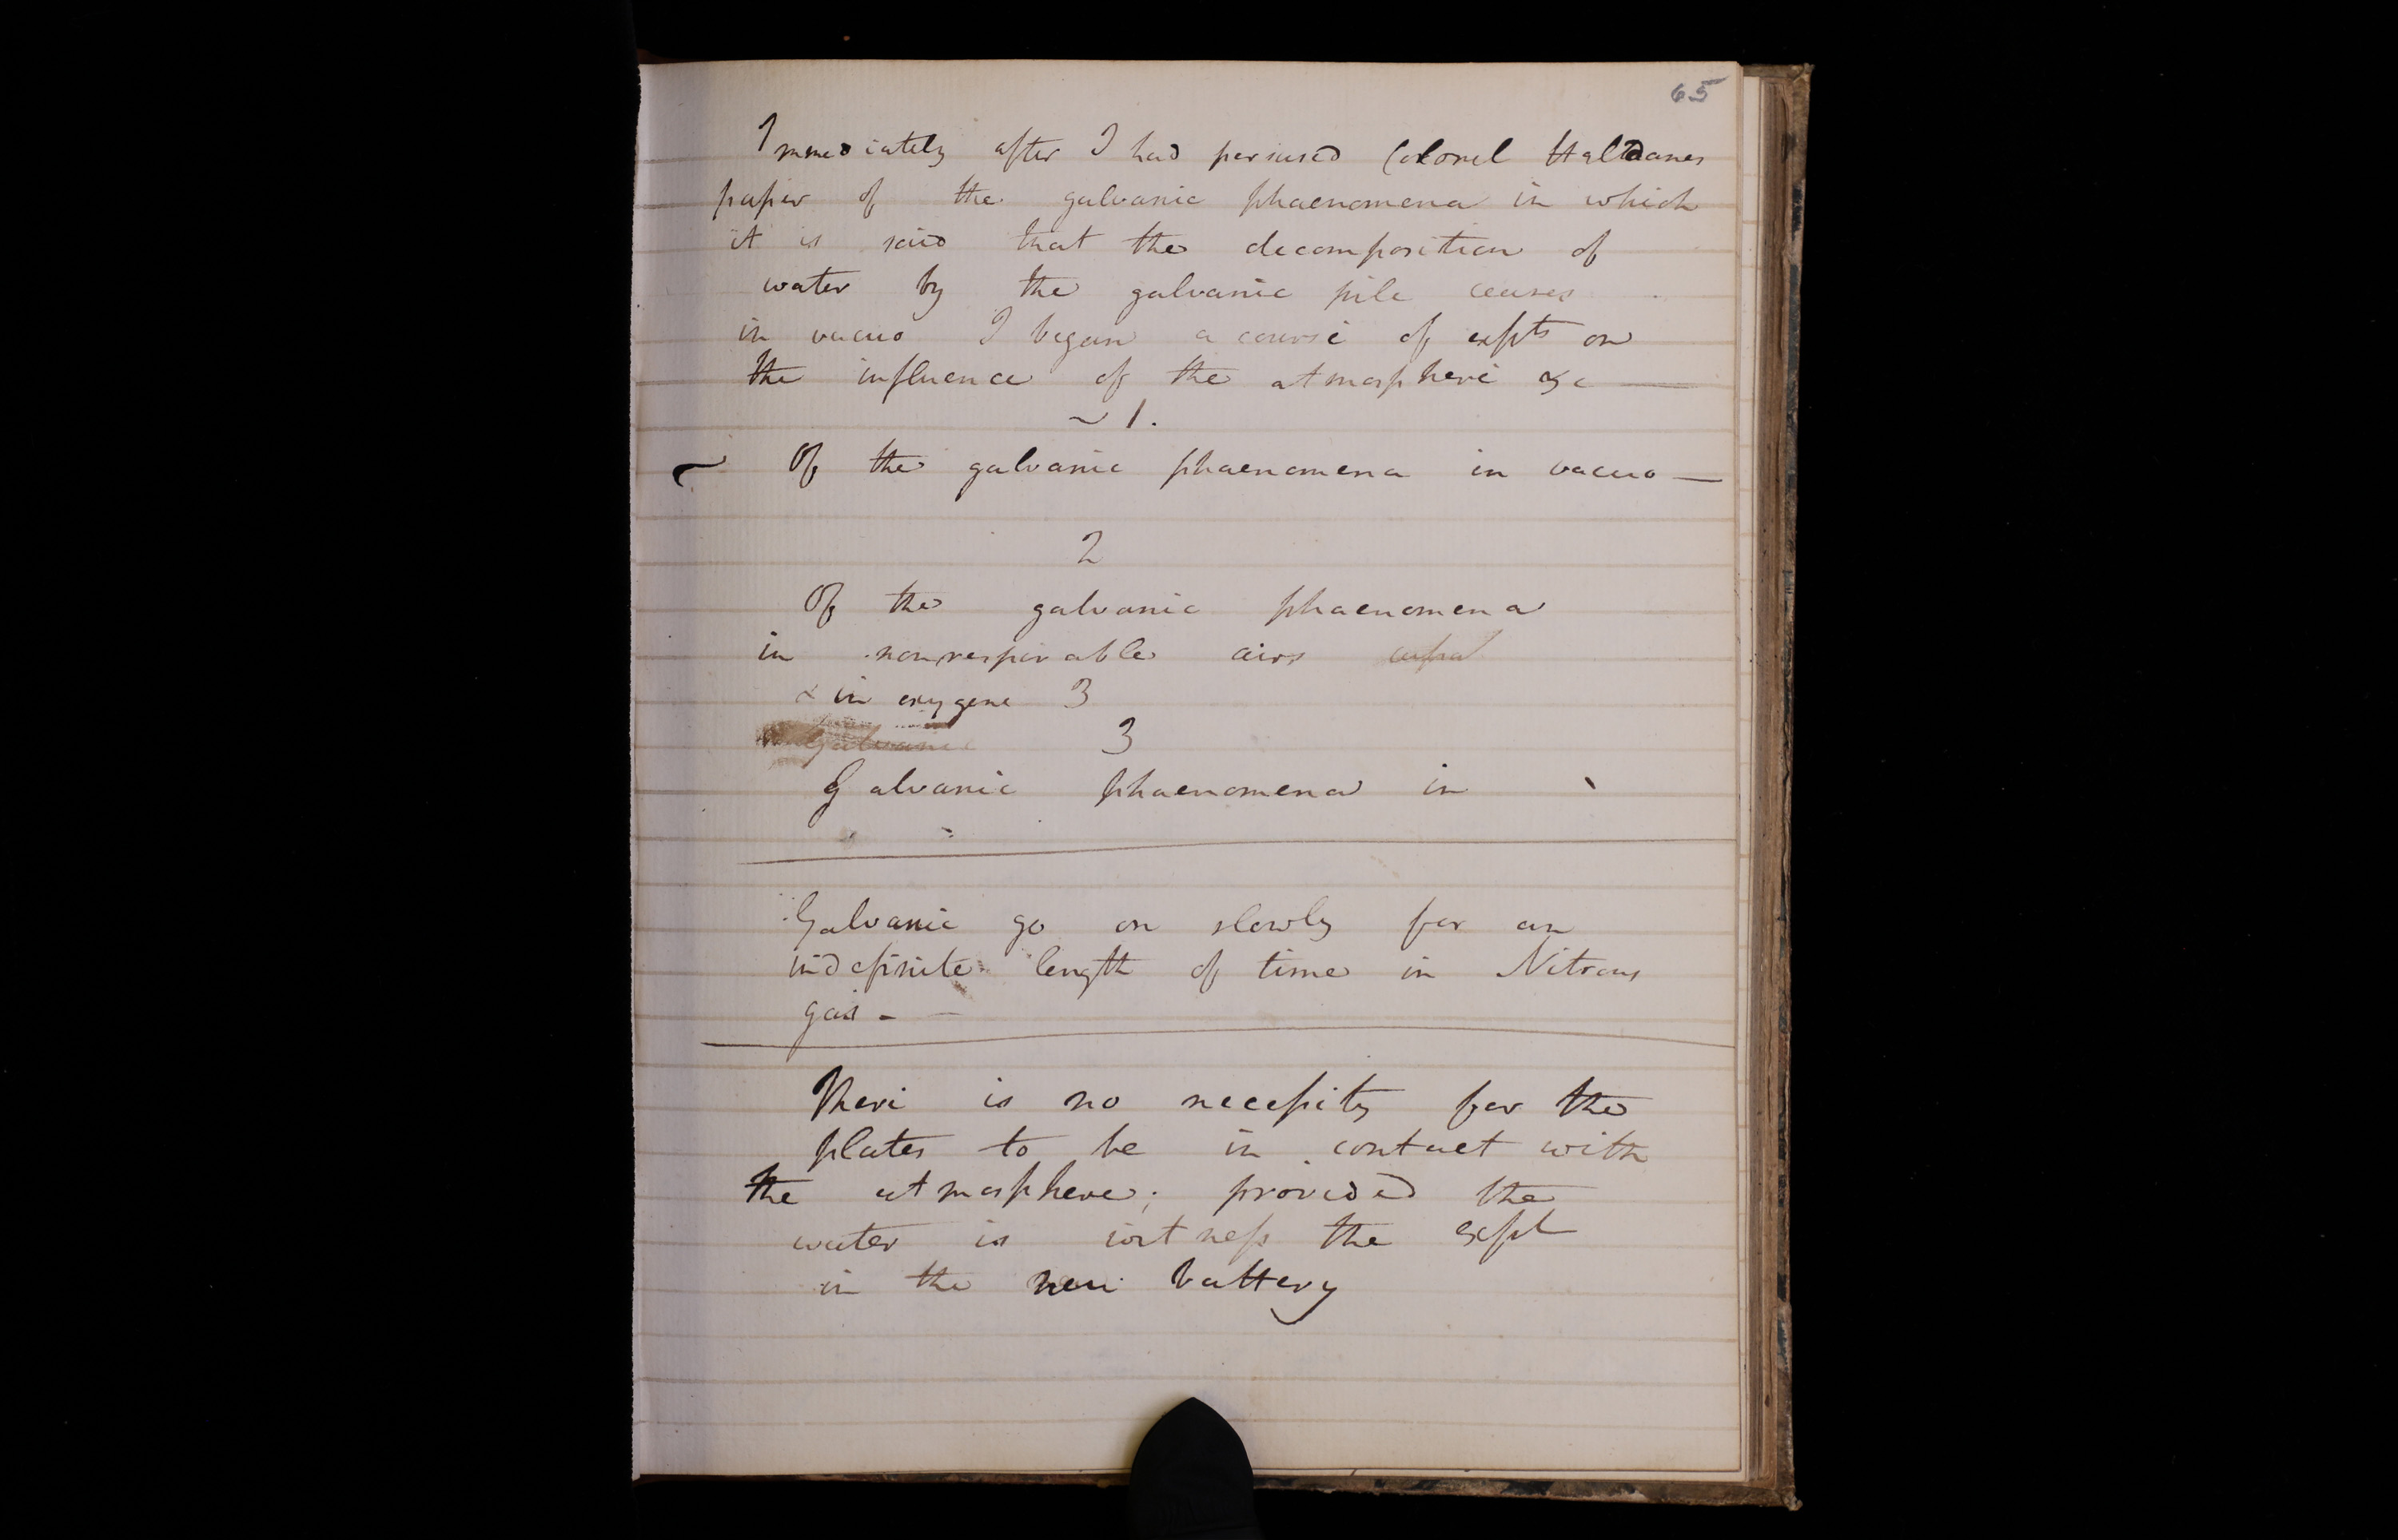 65
Immediately after I had perused Colonel Haldanes
paper of the galvanic phaenomena in which
it is said that the decomposition of
water by the galvanic pile ceases
in vacuo I began a course of expts on
the influence of the atmosphere &c —
~ 1.
Of the galvanic phaenomena in vacuo —
2
Of the galvanic phaenomena
in nonrespirable airs
& in oxygene 3
Galvanic 3
Galvanic phaenomena in
Galvanic go on slowly for an
indefinite length of time in Nitrous
gas - —
There is no necessity for the
plates to be in contact with
the atmosphere; provided the
water is witness the expt
in the new battery